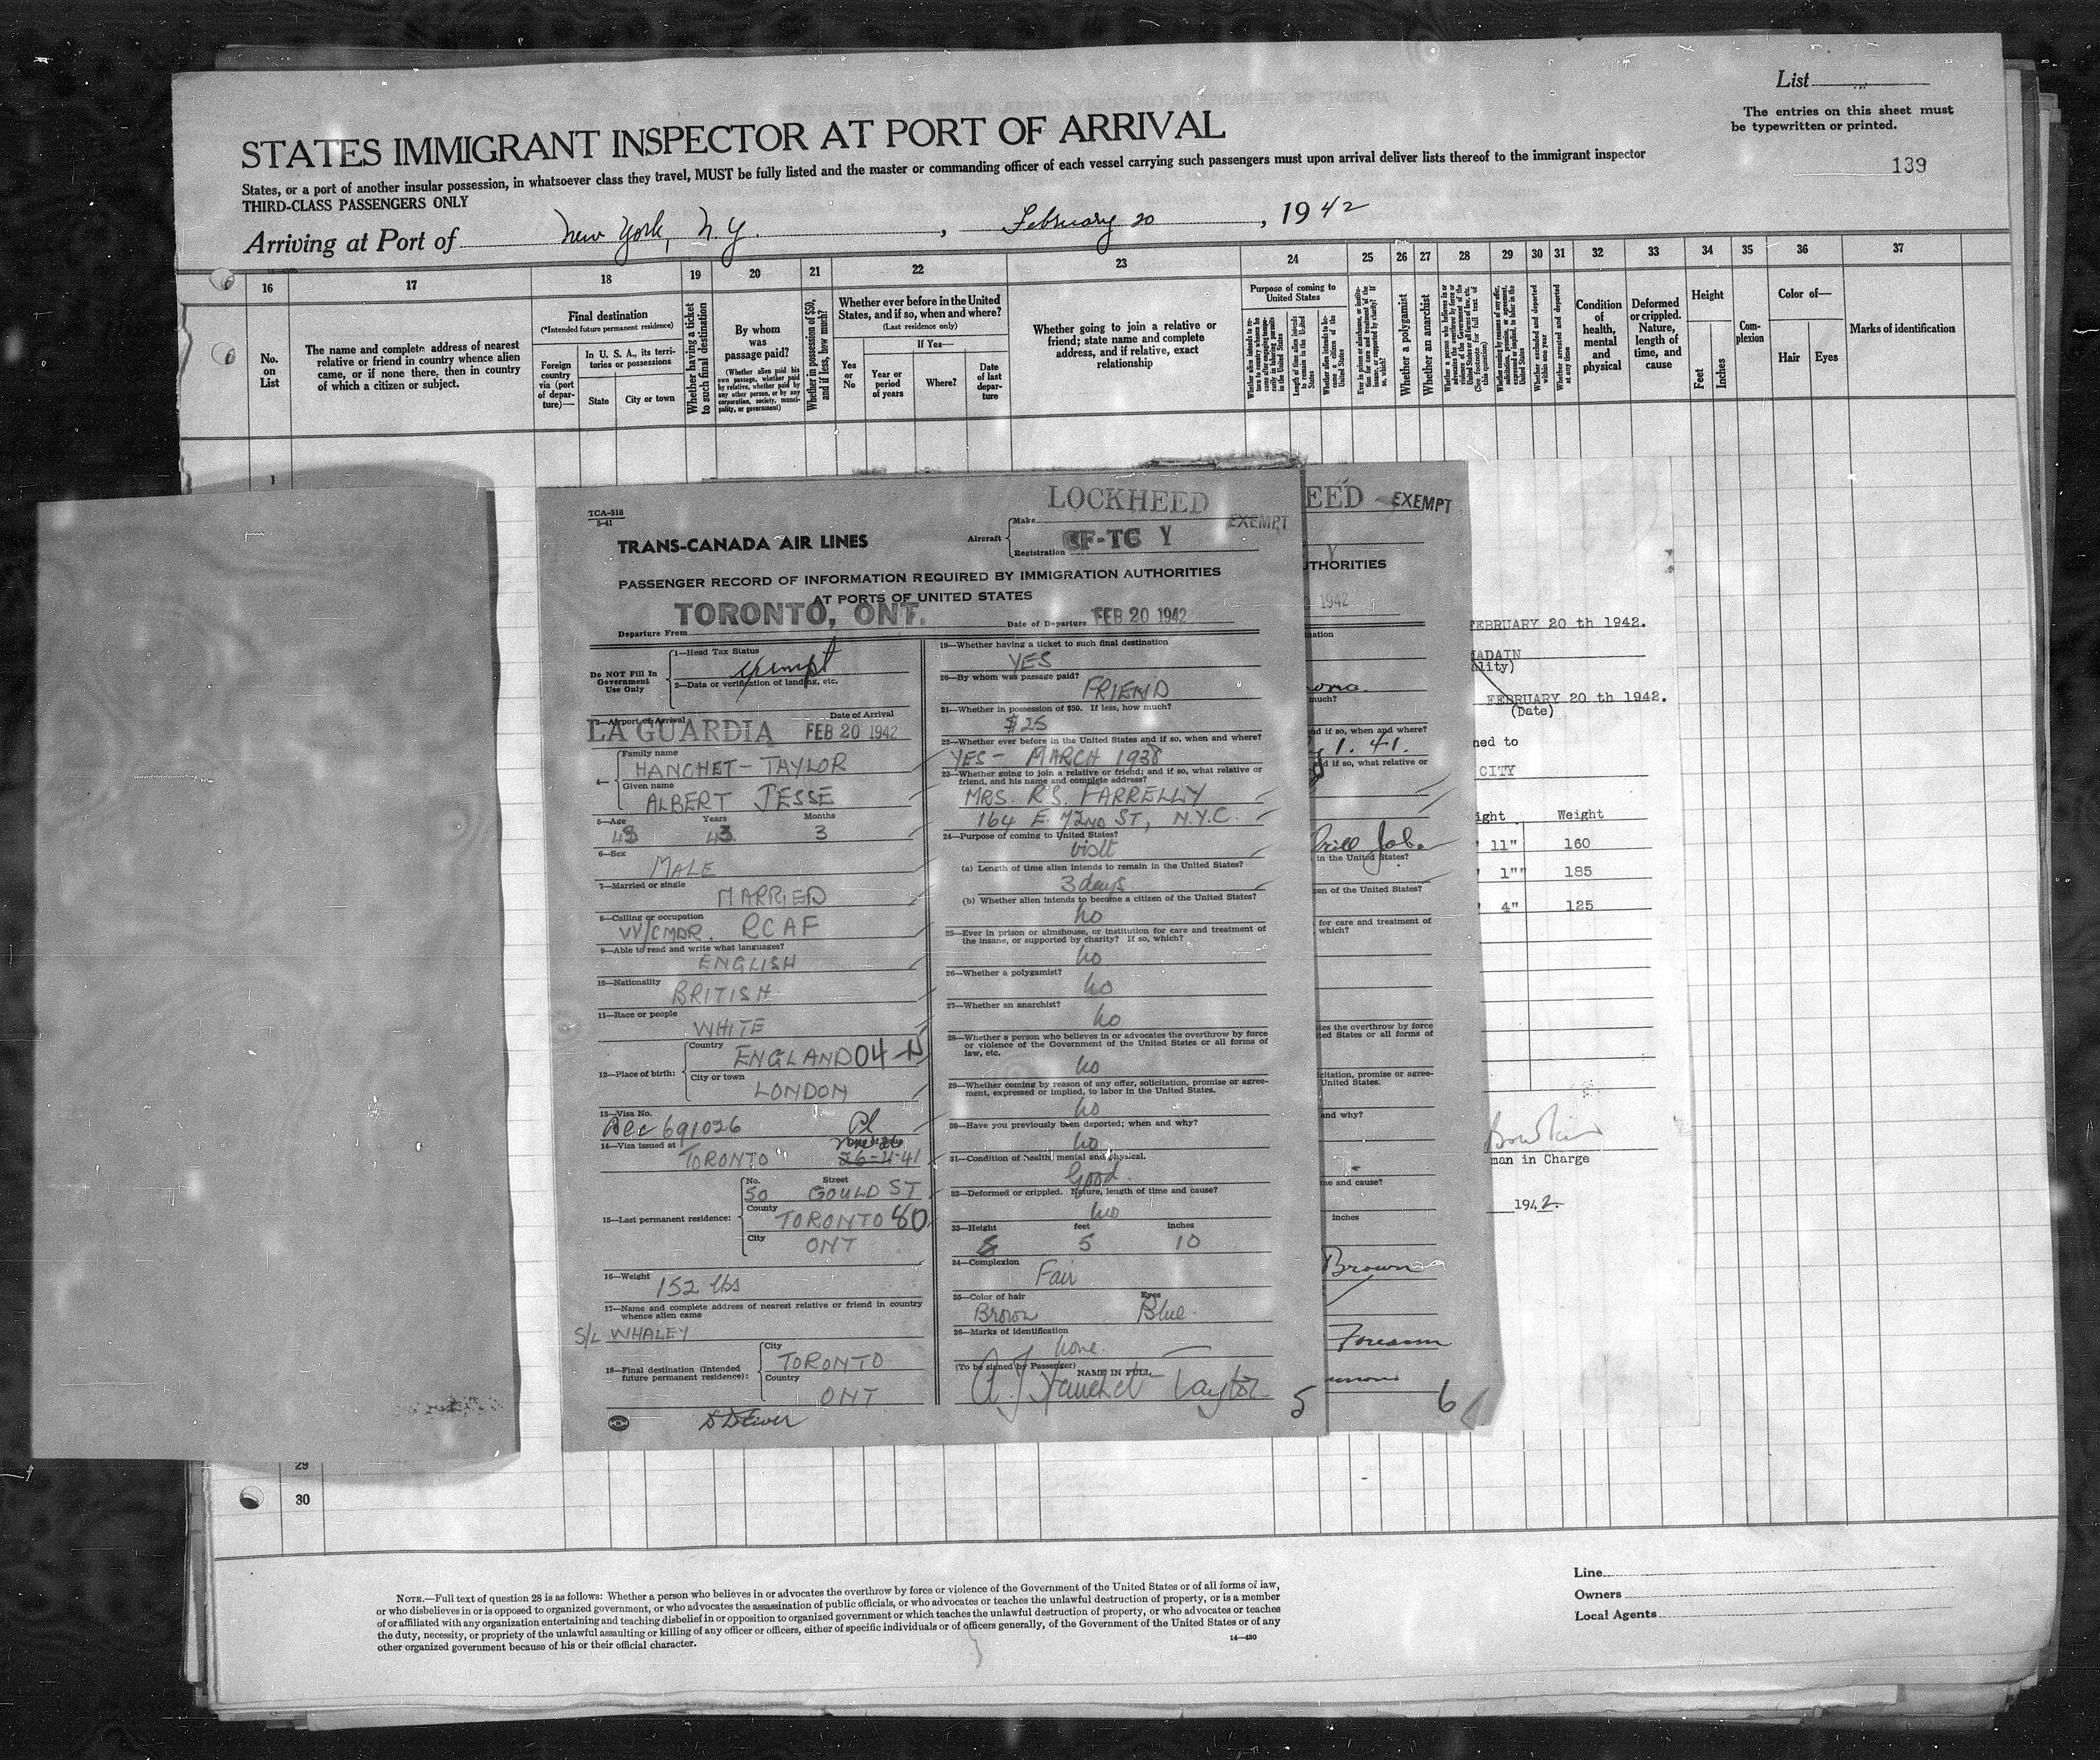 List
The entries on this sheet must
be typewritten or printed.
139
STATES IMMIGRANT INSPECTOR AT PORT OF ARRIVAL
States, or a port of another insular possession, in whatsoever class they travel, MUST be fully listed and the master or commanding officer of each vessel carrying such passengers must upon arrival deliver lists thereof to the immigrant inspector
THIRD-CLASS PASSENGERS ONLY
Arriving at Port of New York, N.Y. , February 20 , 1942
16 17 18 19 20 21 22 23 24 25 26 27 28 29 30 31 32 33 34 35 36 37
No. on List
The name and complete address of nearest relative or friend in country whence alien came, or if none there, then in country of which a citizen or subject.
Final destination
(*Intended future permanent residence)
Foreign country via (port of departure)—
In U. S. A., its territories or possessions
State
City or town
Whether having a ticket to such final destination
By whom was passage paid?
(Whether alien paid his own passage, whether paid by relative, whether paid by any other person, or by any corporation, society, municipality, or government)
Whether in possession of $50, and if less, how much?
Whether ever before in the United States, and if so, when and where?
(Last residence only)
If Yes—
Yes or No
Year or period of years
Where?
Date of last departure
Whether going to join a relative or friend; state name and complete address, and if relative, exact relationship
Purpose of coming to United States
Whether a polygamist
Whether an anarchist
Condition of health, mental and physical
Deformed or crippled. Nature, length of time, and cause
Height
Feet
Inches
Complexion
Color of—
Hair
Eyes
Marks of identification
1
TCA-518
5-41
TRANS-CANADA AIR LINES
Aircraft
Make LOCKHEED
EXEMPT
Registration CF-TC Y
PASSENGER RECORD OF INFORMATION REQUIRED BY IMMIGRATION AUTHORITIES
AT PORTS OF UNITED STATES
Departure From TORONTO, ONT.
Date of Departure FEB 20 1942
Do NOT Fill In Government Use Only
1—Head Tax Status exempt
2—Data or verification of landing, etc.
3—Airport of Arrival LA GUARDIA
Date of Arrival FEB 20 1942
4—
Family name
HANCHET-TAYLOR
Given name
ALBERT JESSE
5—Age Years Months
43 43 3
6—Sex
MALE
7—Married or single
MARRIED
8—Calling or occupation
W/CMDR. RCAF
9—Able to read and write what languages?
ENGLISH
10—Nationality
BRITISH
11—Race or people
WHITE
12—Place of birth:
Country
ENGLAND 04-N
City or town
LONDON
13—Visa No.
691026
14—Visa issued at
TORONTO
15—Last permanent residence:
No. Street
50 GOULD ST
County
TORONTO 80
City
ONT
16—Weight
152 lbs
17—Name and complete address of nearest relative or friend in country whence alien came
S/L WHALEY
18—Final destination (Intended future permanent residence):
City
TORONTO
Country
ONT
19—Whether having a ticket to such final destination
YES
20—By whom was passage paid?
FRIEND
21—Whether in possession of $50. If less, how much?
$25
22—Whether ever before in the United States and if so, when and where?
YES - MARCH 1938
23—Whether going to join a relative or friend; and if so, what relative or
friend, and his name and complete address?
MRS. R.S. FARRELLY
164 E. 72ND ST, N.Y.C.
24—Purpose of coming to United States?
visit
(a) Length of time alien intends to remain in the United States?
3 days
(b) Whether alien intends to become a citizen of the United States?
no
25—Ever in prison or almshouse, or institution for care and treatment of
the insane, or supported by charity? If so, which?
no
26—Whether a polygamist?
no
27—Whether an anarchist?
no
28—Whether a person who believes in or advocates the overthrow by force
or violence of the Government of the United States or all forms of
law, etc.
no
29—Whether coming by reason of any offer, solicitation, promise or agree-
ment, expressed or implied, to labor in the United States.
no
30—Have you previously been deported; when and why?
no
31—Condition of health, mental and physical.
Good.
32—Deformed or crippled. Nature, length of time and cause?
no
33—Height feet inches
5 10
34—Complexion
Fair
35—Color of hair Eyes
Brown Blue.
36—Marks of identification
none.
(To be signed by Passenger) NAME IN FULL
A. J. Hanchet Taylor
5
EED EXEMPT
Y
UTHORITIES
1942
much?
nd if so, when and where?
1. 41.
d if so, what relative or
in the United States?
zen of the United States?
for care and treatment of
which?
tes the overthrow by force
ted States or all forms of
icitation, promise or agree-
United States.
and why?
me and cause?
inches
Brown
6
FEBRUARY 20 th 1942.
ADAIN
ality)
FEBRUARY 20 th 1942.
(Date)
ned to
CITY
ight Weight
11" 160
1"" 185
4" 125
man in Charge
1942.
29
30
NOTE.—Full text of question 28 is as follows: Whether a person who believes in or advocates the overthrow by force or violence of the Government of the United States or of all forms of law,
or who disbelieves in or is opposed to organized government, or who advocates the assassination of public officials, or who advocates or teaches the unlawful destruction of property, or is a member
of or affiliated with any organization entertaining and teaching disbelief in or opposition to organized government or which teaches the unlawful destruction of property, or who advocates or teaches
the duty, necessity, or propriety of the unlawful assaulting or killing of any officer or officers, either of specific individuals or of officers generally, of the Government of the United States or of any
other organized government because of his or their official character.
14—430
Line
Owners
Local Agents